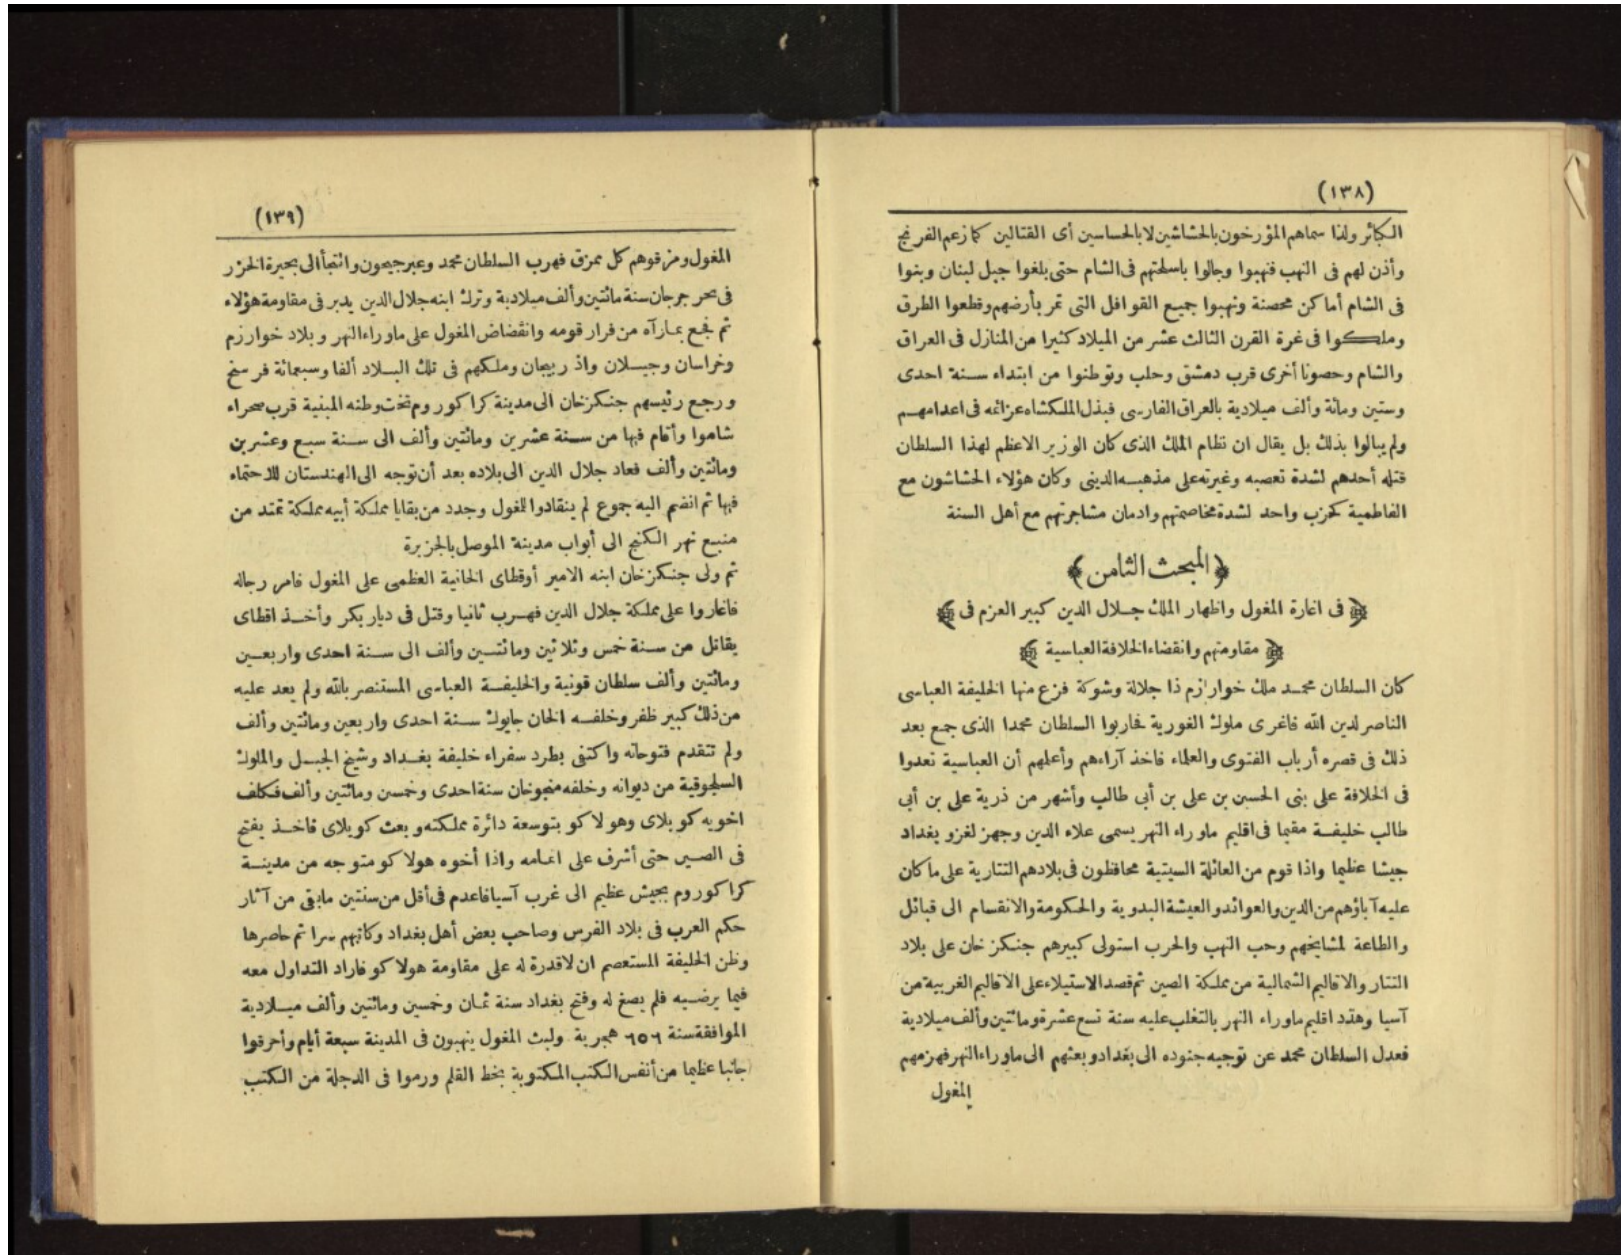 (١٣٨)
الكبائر ولذا سماهم المؤرخون بالحشاشين لا بالحساسين أى القتالين كما زعم الفرنج
وأذن لهم فى النهب فنهبوا وجالوا باسلحتهم فى الشام حتى بلغوا جبل لبنان وبنوا
فى الشام أماكن محصنة ونهبوا جميع القوافل التى تمر بأرضهم وقطعوا الطرق
وملكوا فى غرة القرن الثالث عشر من الميلاد كثيرا من المنازل فى العراق
والشام وحصونا أخرى قرب دمشق وحلب وتوطنوا من ابتداء سنة احدى
وستين ومائة وألف ميلادية بالعراق الفارسى فبذل الملكشاه عزائمه فى اعدامهم
ولم يبالوا بذلك بل يقال ان نظام الملك الذى كان الوزير الاعظم لهذا السلطان
قتله أحدهم لشدة تعصبه وغيرته على مذهبه الدينى وكان هؤلاء الحشاشون مع
الفاطمية كحزب واحد لشدة مخاصمتهم وادمان مشاجرتهم مع أهل السنة
﴿المبحث الثامن﴾
﴿فى اغارة المغول واظهار الملك جلال الدين كبير العزم فى﴾
﴿مقاومتهم وانقضاء الخلافة العباسية﴾
كان السلطان محمد ملك خوارزم ذا جلالة وشوكة فزع منها الخليفة العباسى
الناصر لدين الله فاغرى ملوك الغورية فحاربوا السلطان محمدا الذى جمع بعد
ذلك فى قصره أرباب الفتوى والعلماء فاخذ آراءهم وأعلمهم أن العباسية تعدوا
فى الخلافة على بنى الحسين بن على بن أبى طالب وأشهر من ذرية على بن أبى
طالب خليفة مقيما فى اقليم ماوراء النهر يسمى علاء الدين وجهز لغزو بغداد
جيشا عظيما واذا قوم من العائلة السيتية محافظون فى بلادهم التتارية على ما كان
عليه آباؤهم من الدين والعوائد والعيشة البدوية والحكومة والانقسام الى قبائل
والطاعة لمشايخهم وحب النهب والحرب استولى كبيرهم جنكزخان على بلاد
التتار والاقاليم الشمالية من مملكة الصين ثم قصد الاستيلاء على الاقاليم الغربية من
آسيا وهدد اقليم ماوراء النهر بالتغلب عليه سنة تسع عشرة ومائتين وألف ميلادية
فعدل السلطان محمد عن توجيه جنوده الى بغداد وبعثهم الى ماوراء النهر فهزمهم
المغول
(١٣٩)
المغول ومزقوهم كل ممزق فهرب السلطان محمد وعبر جيحون والتجأ الى بحيرة الخزر
فى بحر جرجان سنة مائتين وألف ميلادية وترك ابنه جلال الدين يدبر فى مقاومة هؤلاء
ثم فجع بمارآه من فرار قومه وانقضاض المغول على ماوراء النهر وبلاد خوارزم
وخراسان وجيلان واذربيجان وملكهم فى تلك البلاد ألفا وسبعمائة فرسخ
ورجع رئيسهم جنكزخان الى مدينة كراكوروم تخت وطنه المبنية قرب صحراء
شاموا وأقام فيها من سنة عشرين ومائتين وألف الى سنة سبع وعشرين
ومائتين وألف فعاد جلال الدين الى بلاده بعد أن توجه الى الهندستان للاحتماء
فيها ثم انضم اليه جموع لم ينقادوا للمغول وجدد من بقايا مملكة أبيه مملكة تمتد من
منبع نهر الكنج الى أبواب مدينة الموصل بالجزيرة
ثم ولى جنكزخان ابنه الامير أوقطاى الخانية العظمى على المغول فامر رجاله
فاغاروا على مملكة جلال الدين فهرب ثانيا وقتل فى ديار بكر وأخذ اقطاى
يقاتل من سنة خمس وثلاثين ومائتين وألف الى سنة احدى واربعين
ومائتين وألف سلطان قونية والخليفة العباسى المستنصر بالله ولم يعد عليه
من ذلك كبير ظفر وخلفه الخان جايوك سنة احدى واربعين ومائتين وألف
ولم تتقدم فتوحاته واكتفى بطرد سفراء خليفة بغداد وشيخ الجبل والملوك
السلجوقية من ديوانه وخلفه منجوخان سنة احدى وخمسين ومائتين وألف فكلف
اخويه كوبلاى وهولاكو بتوسعة دائرة مملكته وبعث كوبلاى فاخذ يفتح
فى الصين حتى أشرف على اتمامه واذا أخوه هولاكو متوجه من مدينة
كراكوروم بجيش عظيم الى غرب آسيا فاعدم فى أقل من سنتين مابقى من آثار
حكم العرب فى بلاد الفرس وصاحب بعض أهل بغداد وكاتبهم سرا ثم حاصرها
وظن الخليفة المستعصم ان لاقدرة له على مقاومة هولاكو فاراد التداول معه
فيما يرضيه فلم يصغ له وفتح بغداد سنة ثمان وخمسين ومائتين وألف ميلادية
الموافقة سنة ٦٥٦ هجرية ولبث المغول ينهبون فى المدينة سبعة أيام وأحرقوا
جانبا عظيما من أنفس الكتب المكتوبة بخط القلم ورموا فى الدجلة من الكتب